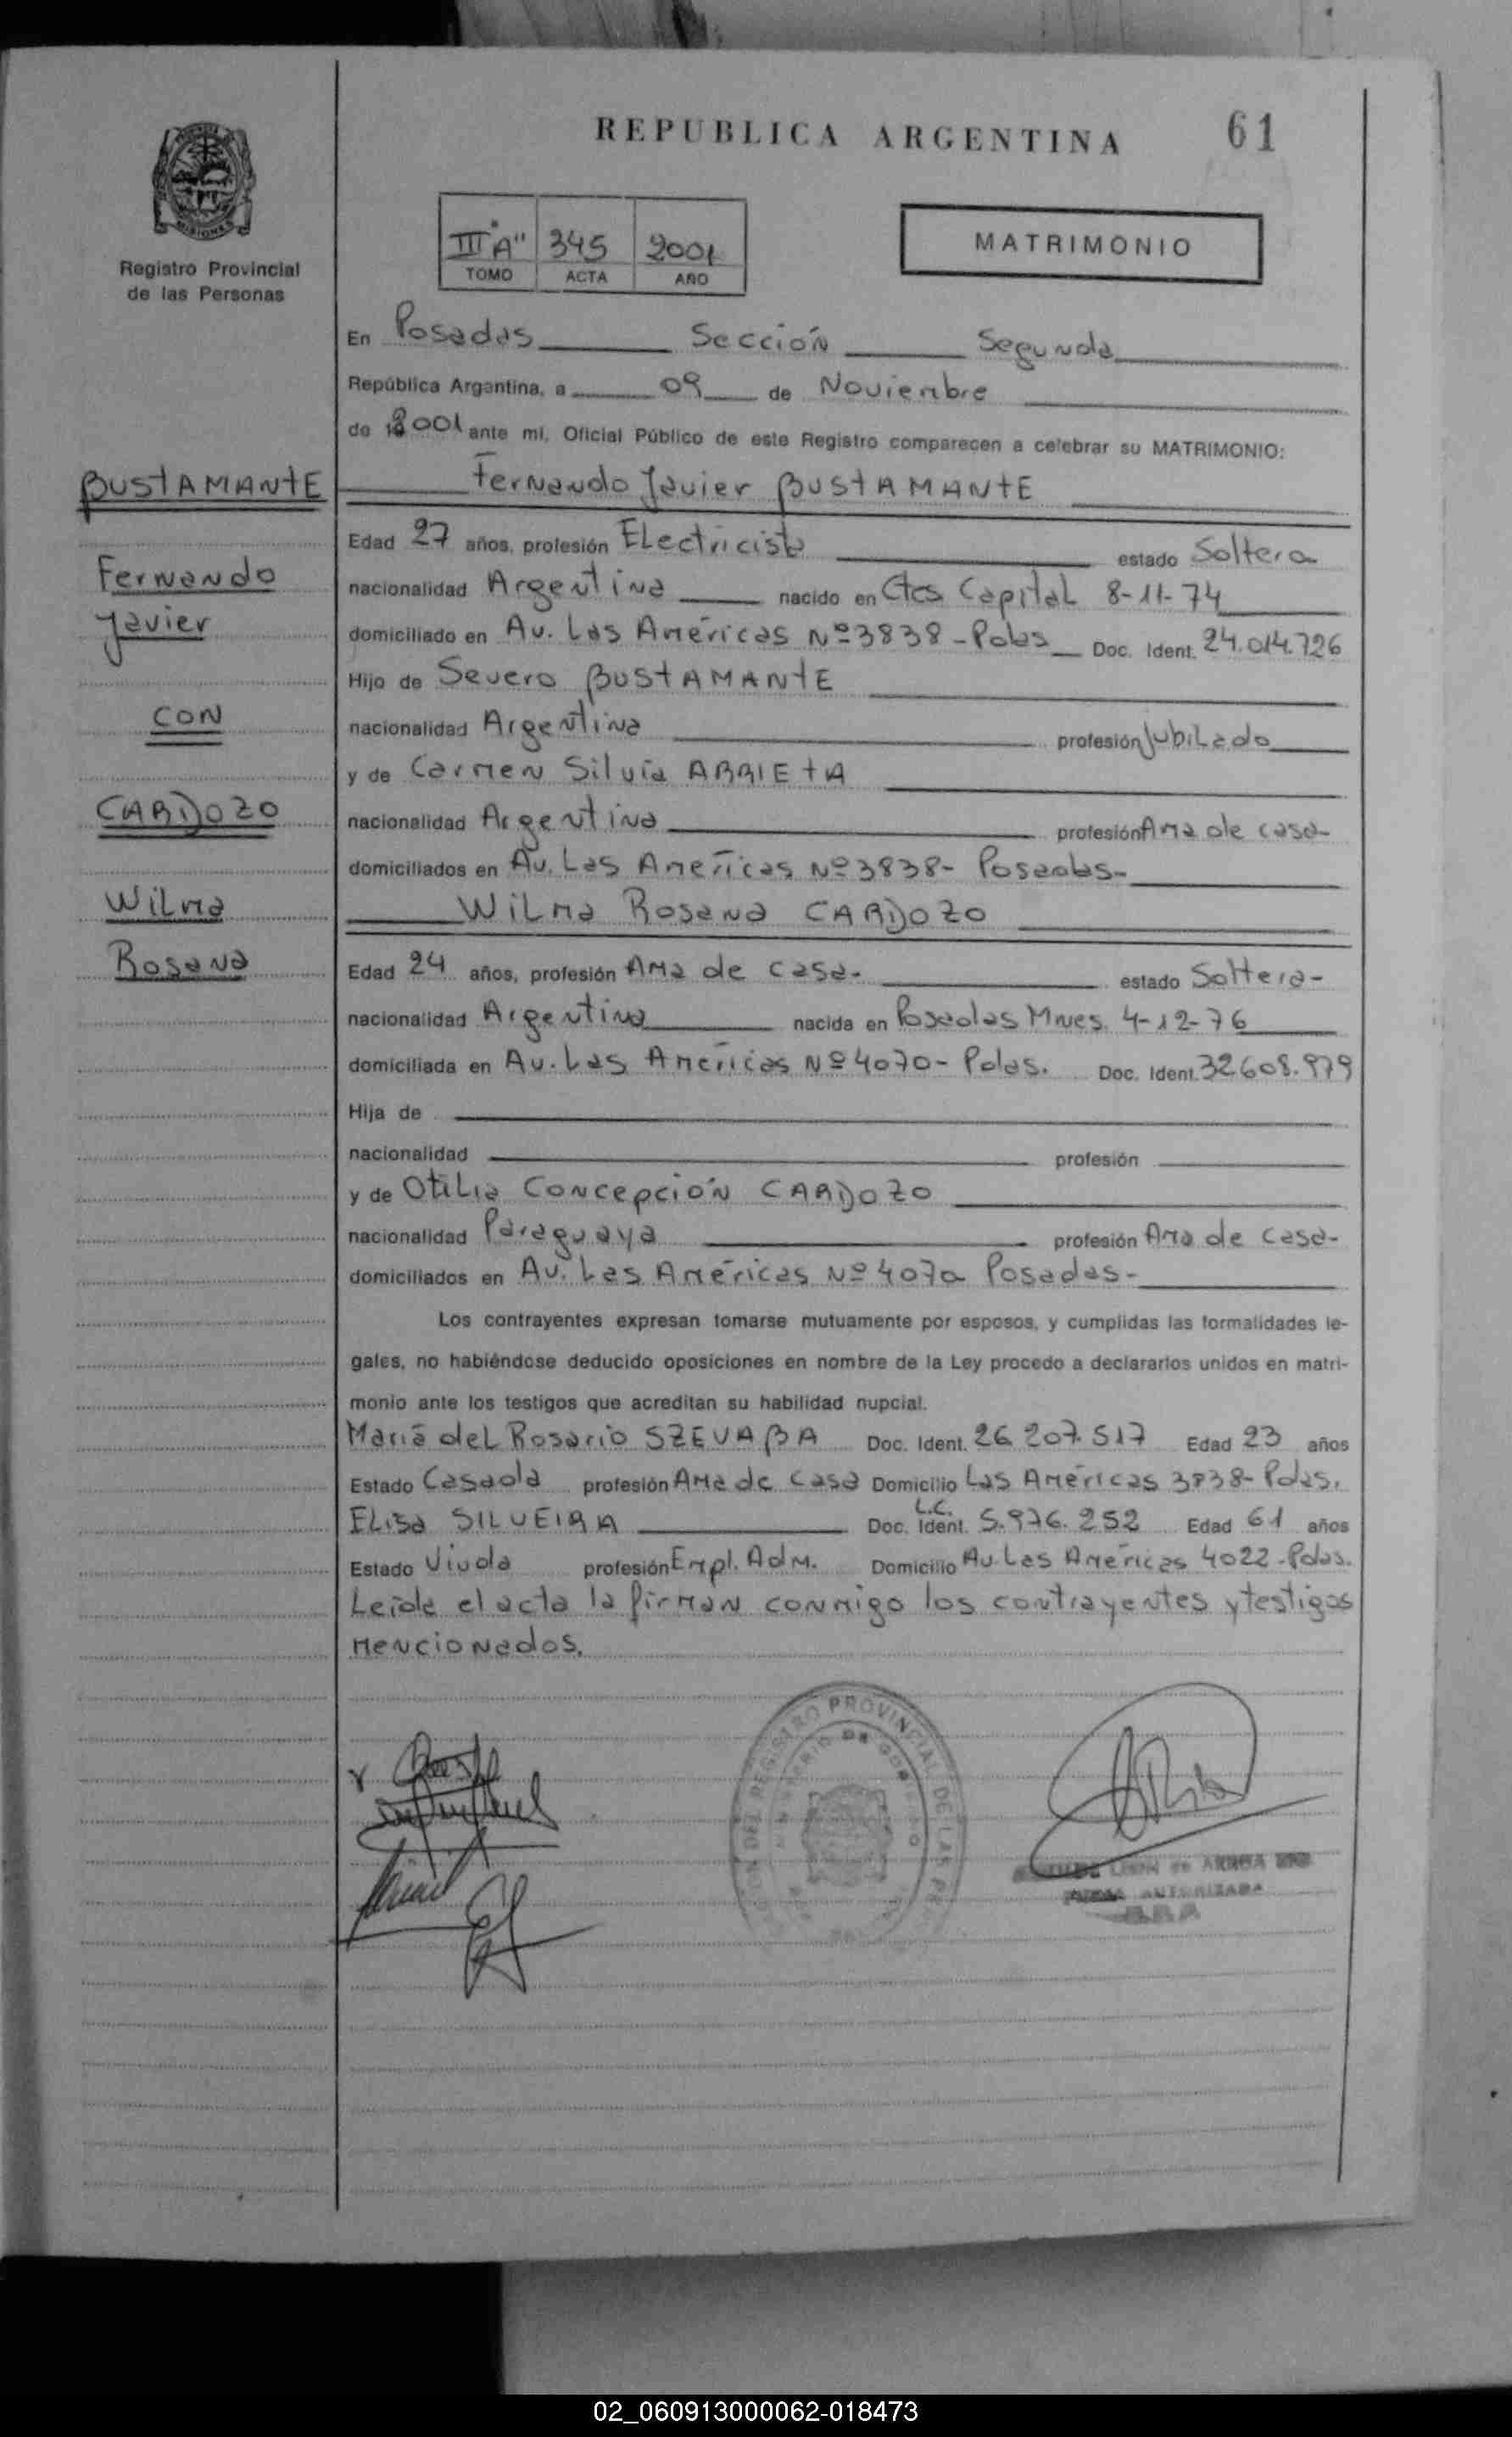 REPUBLICA ARGENTINA
61
MISIONES
Registro Provincial
de las Personas
III "A" 345 2001
TOMO ACTA AÑO
MATRIMONIO
En Posadas Sección Segunda
República Argentina, a 09 de Noviembre
de 2001 ante mí, Oficial Público de este Registro comparecen a celebrar su MATRIMONIO:
BUSTAMANTE
Fernando
Javier
CON
CARDOZO
Wilma
Rosana
Fernando Javier BUSTAMANTE
Edad 27 años, profesión Electricista estado Soltero
nacionalidad Argentina nacido en Ctes Capital 8-11-74
domiciliado en Av. Las Américas Nº 3838 - Pdas Doc. Ident. 24.014.726
Hijo de Severo BUSTAMANTE
nacionalidad Argentina profesión Jubilado
y de Carmen Silvia ARRIETA
nacionalidad Argentina profesión Ama de casa-
domiciliados en Av. Las Américas Nº 3838- Posadas-
Wilma Rosana CARDOZO
Edad 24 años, profesión Ama de casa- estado Soltera-
nacionalidad Argentina nacida en Posadas Mnes. 4-12-76
domiciliada en Av. Las Américas Nº 4070- Pdas. Doc. Ident. 32.608.979
Hija de
nacionalidad profesión
y de Otilia Concepción CARDOZO
nacionalidad Paraguaya profesión Ama de casa-
domiciliados en Av. Las Américas Nº 4070 Posadas-
Los contrayentes expresan tomarse mutuamente por esposos, y cumplidas las formalidades le-
gales, no habiéndose deducido oposiciones en nombre de la Ley procedo a declararlos unidos en matri-
monio ante los testigos que acreditan su habilidad nupcial.
María del Rosario SZEVABA Doc. Ident. 26.207.517 Edad 23 años
Estado Casada profesión Ama de casa Domicilio Las Américas 3838- Pdas.
L.C.
Elisa SILVEIRA Doc. Ident. 5.976.252 Edad 61 años
Estado Viuda profesión Empl. Adm. Domicilio Av. Las Américas 4022-Pdas.
Leída el acta la firman conmigo los contrayentes y testigos
mencionados.
DEL REGISTRO PROVINCIAL DE LAS PE
MINISTERIO DE GOBIERNO
LEON de ARROA
FIRMA AUTORIZADA
02_060913000062-018473